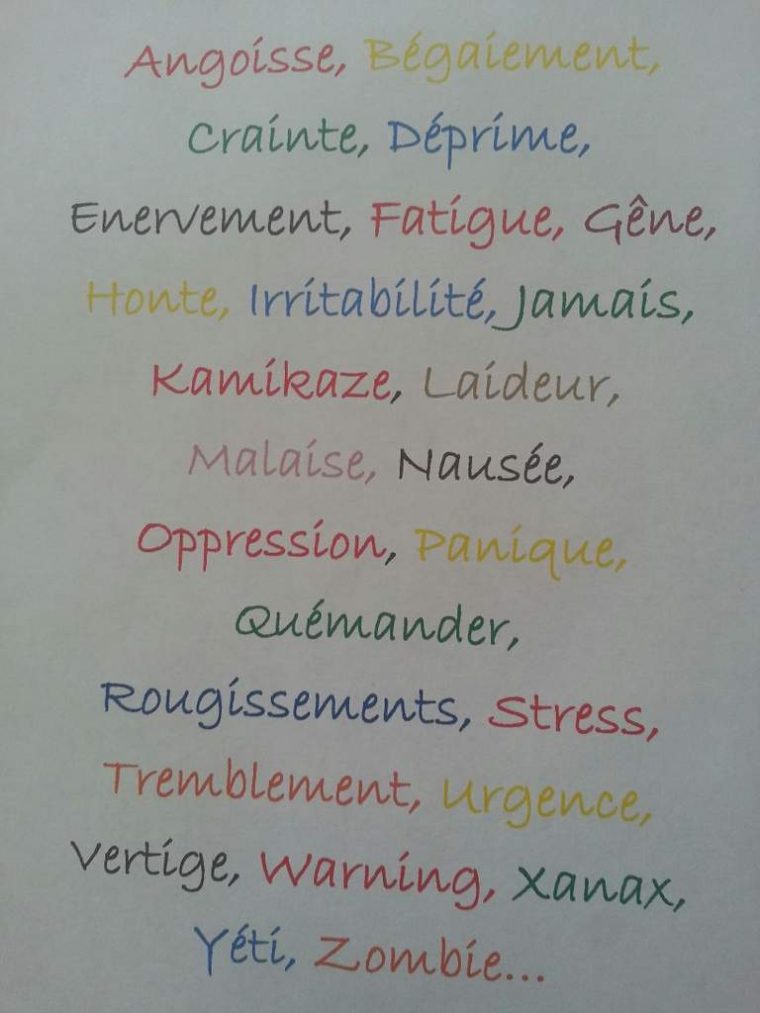 Angoisse, Bégaiement,
Crainte, Déprime,
Enervement, Fatigue, Gêne,
Honte, Irritabilité, Jamais,
Kamikaze, Laideur,
Malaise, Nausée,
Oppression, Panique,
Quémander,
Rougissements, Stress,
Tremblement, Urgence,
Vertige, Warning, Xanax,
Yéti, Zombie...